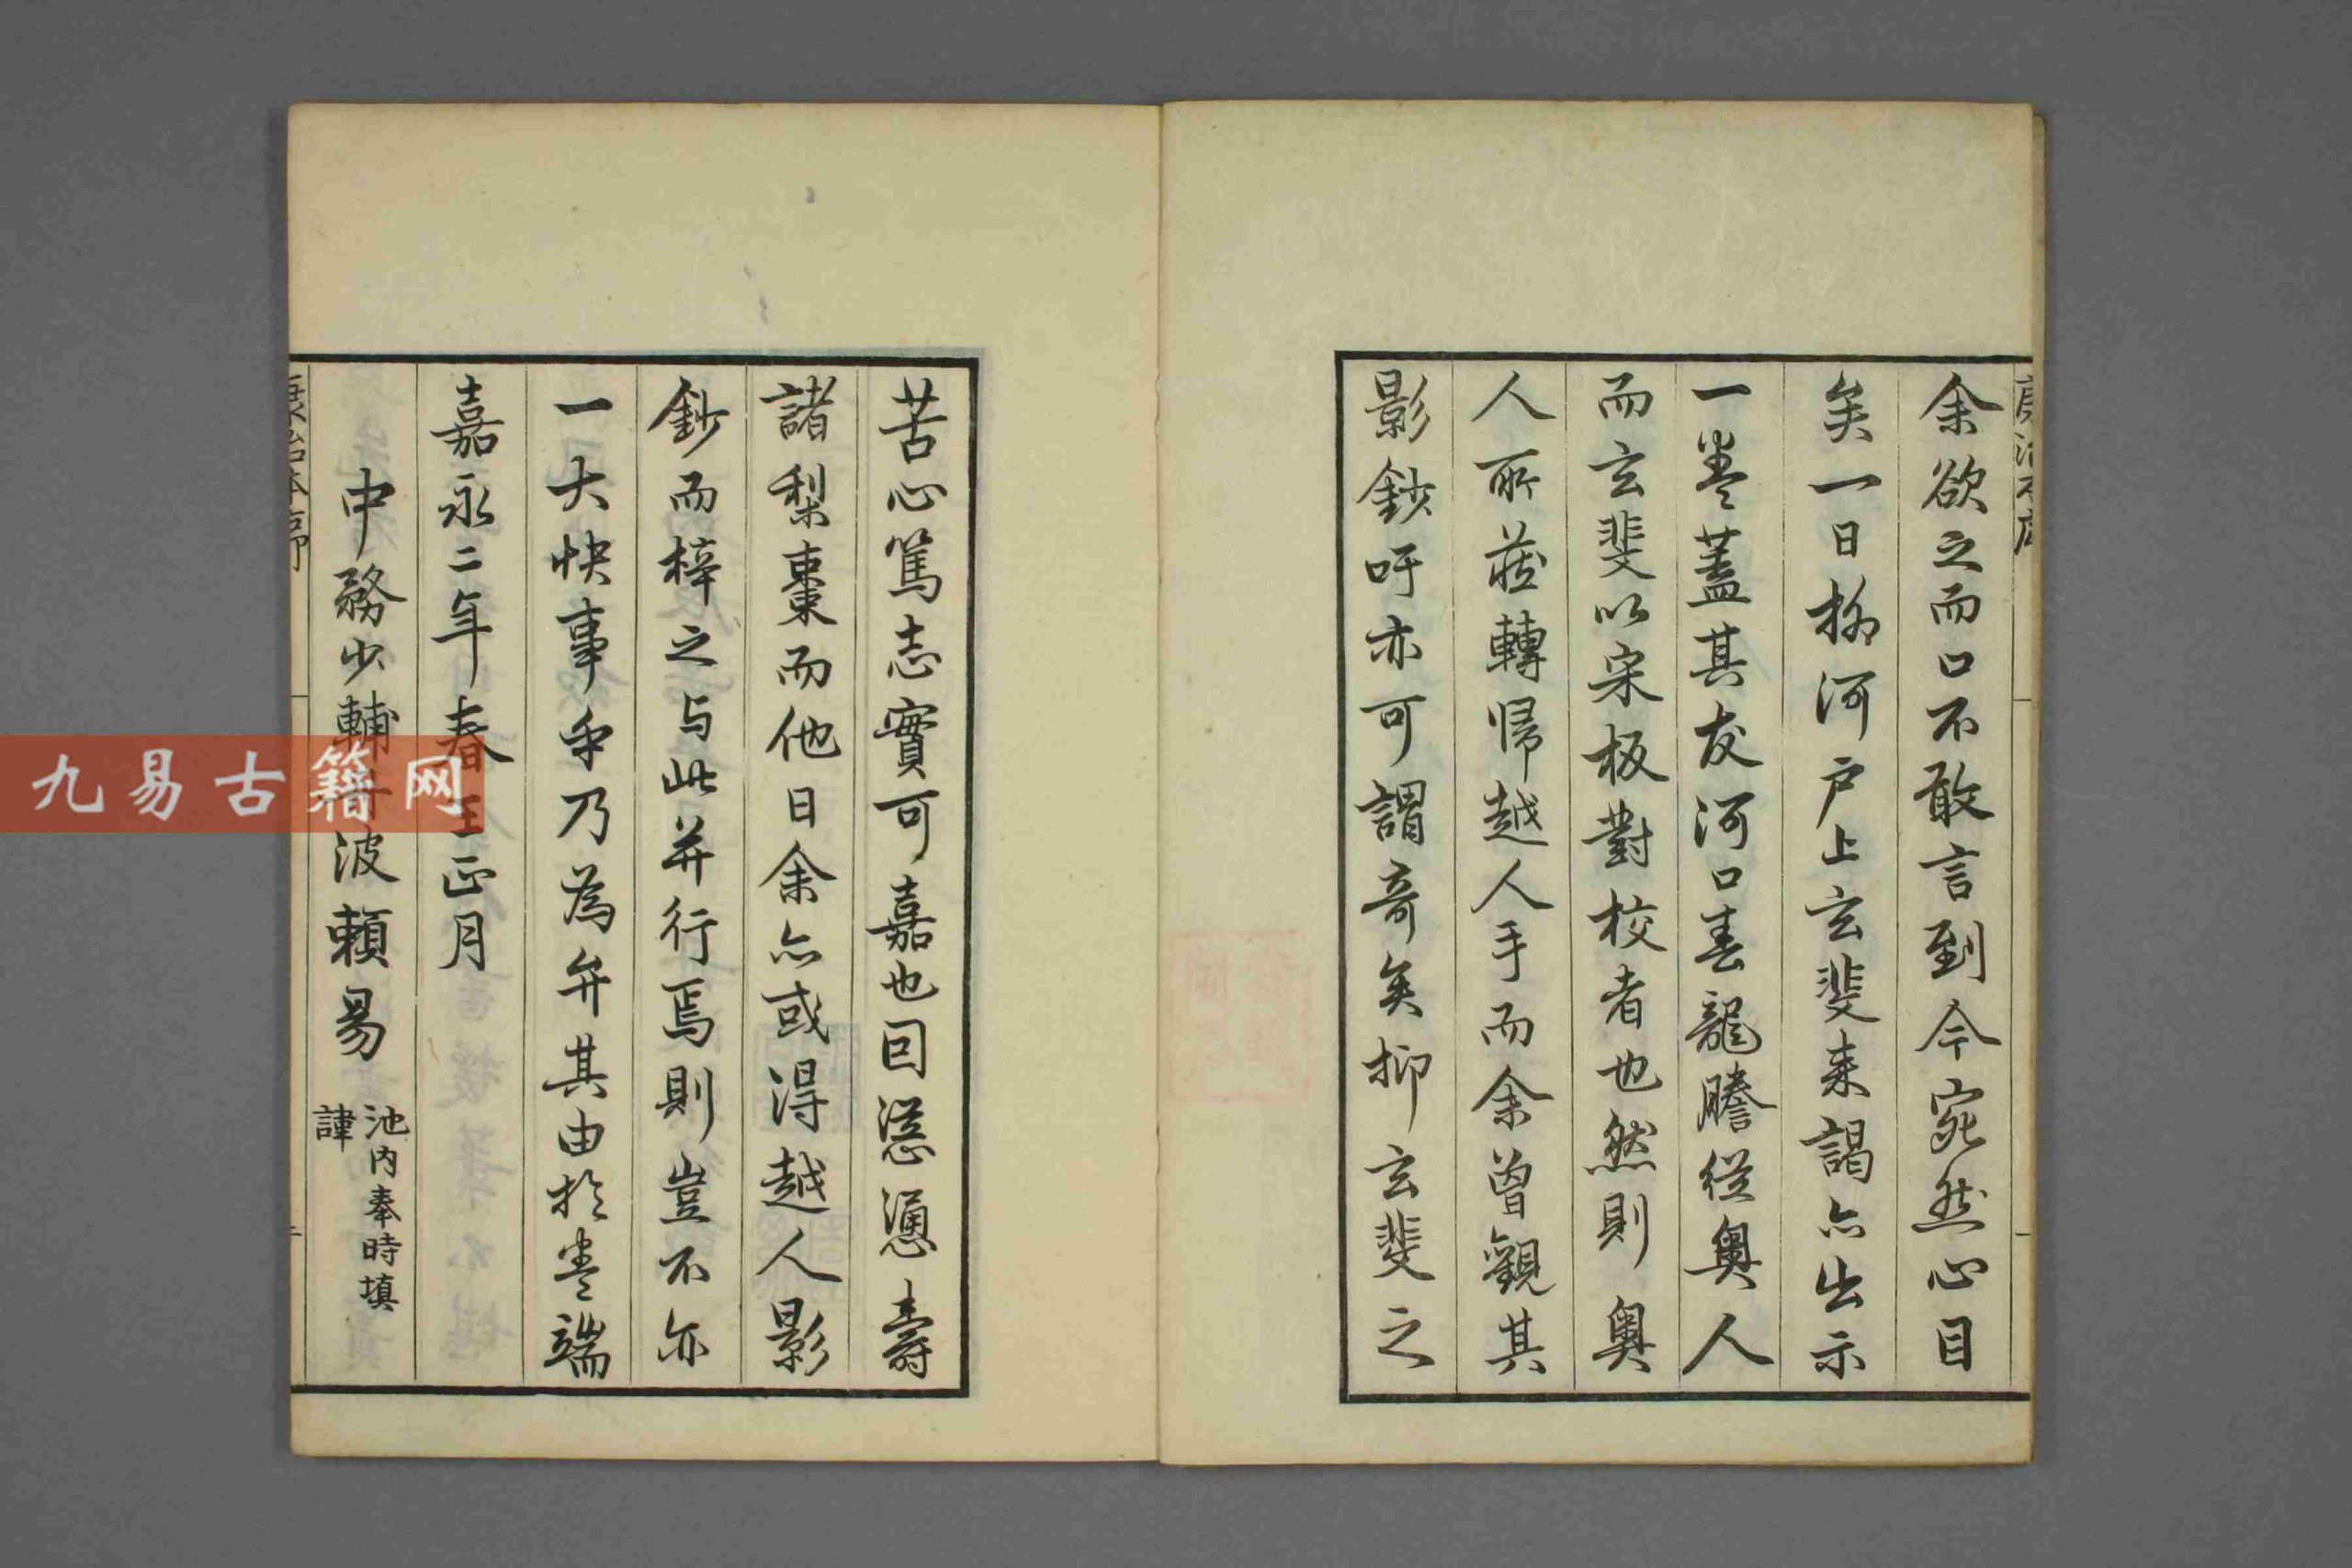 余欲之而口不敢言到今宛然心目
矣一日柳河戸上玄斐来謁亦出示
一巻蓋其友河口春龍謄從奥人
而玄斐以宋板對校者也然則奥
人所莊轉帰越人手而余曾觀其
影鈔吁亦可謂奇矣抑玄斐之
苦心篤志實可嘉也因慫慂壽
諸梨棗而他日余亦或得越人影
鈔而梓之与此并行焉則豈不亦
一大快事乎乃為弁其由於巻端
嘉永二年春王正月
中務少輔丹波頼易
池内奉時填
諱
康治本序
九易古籍网